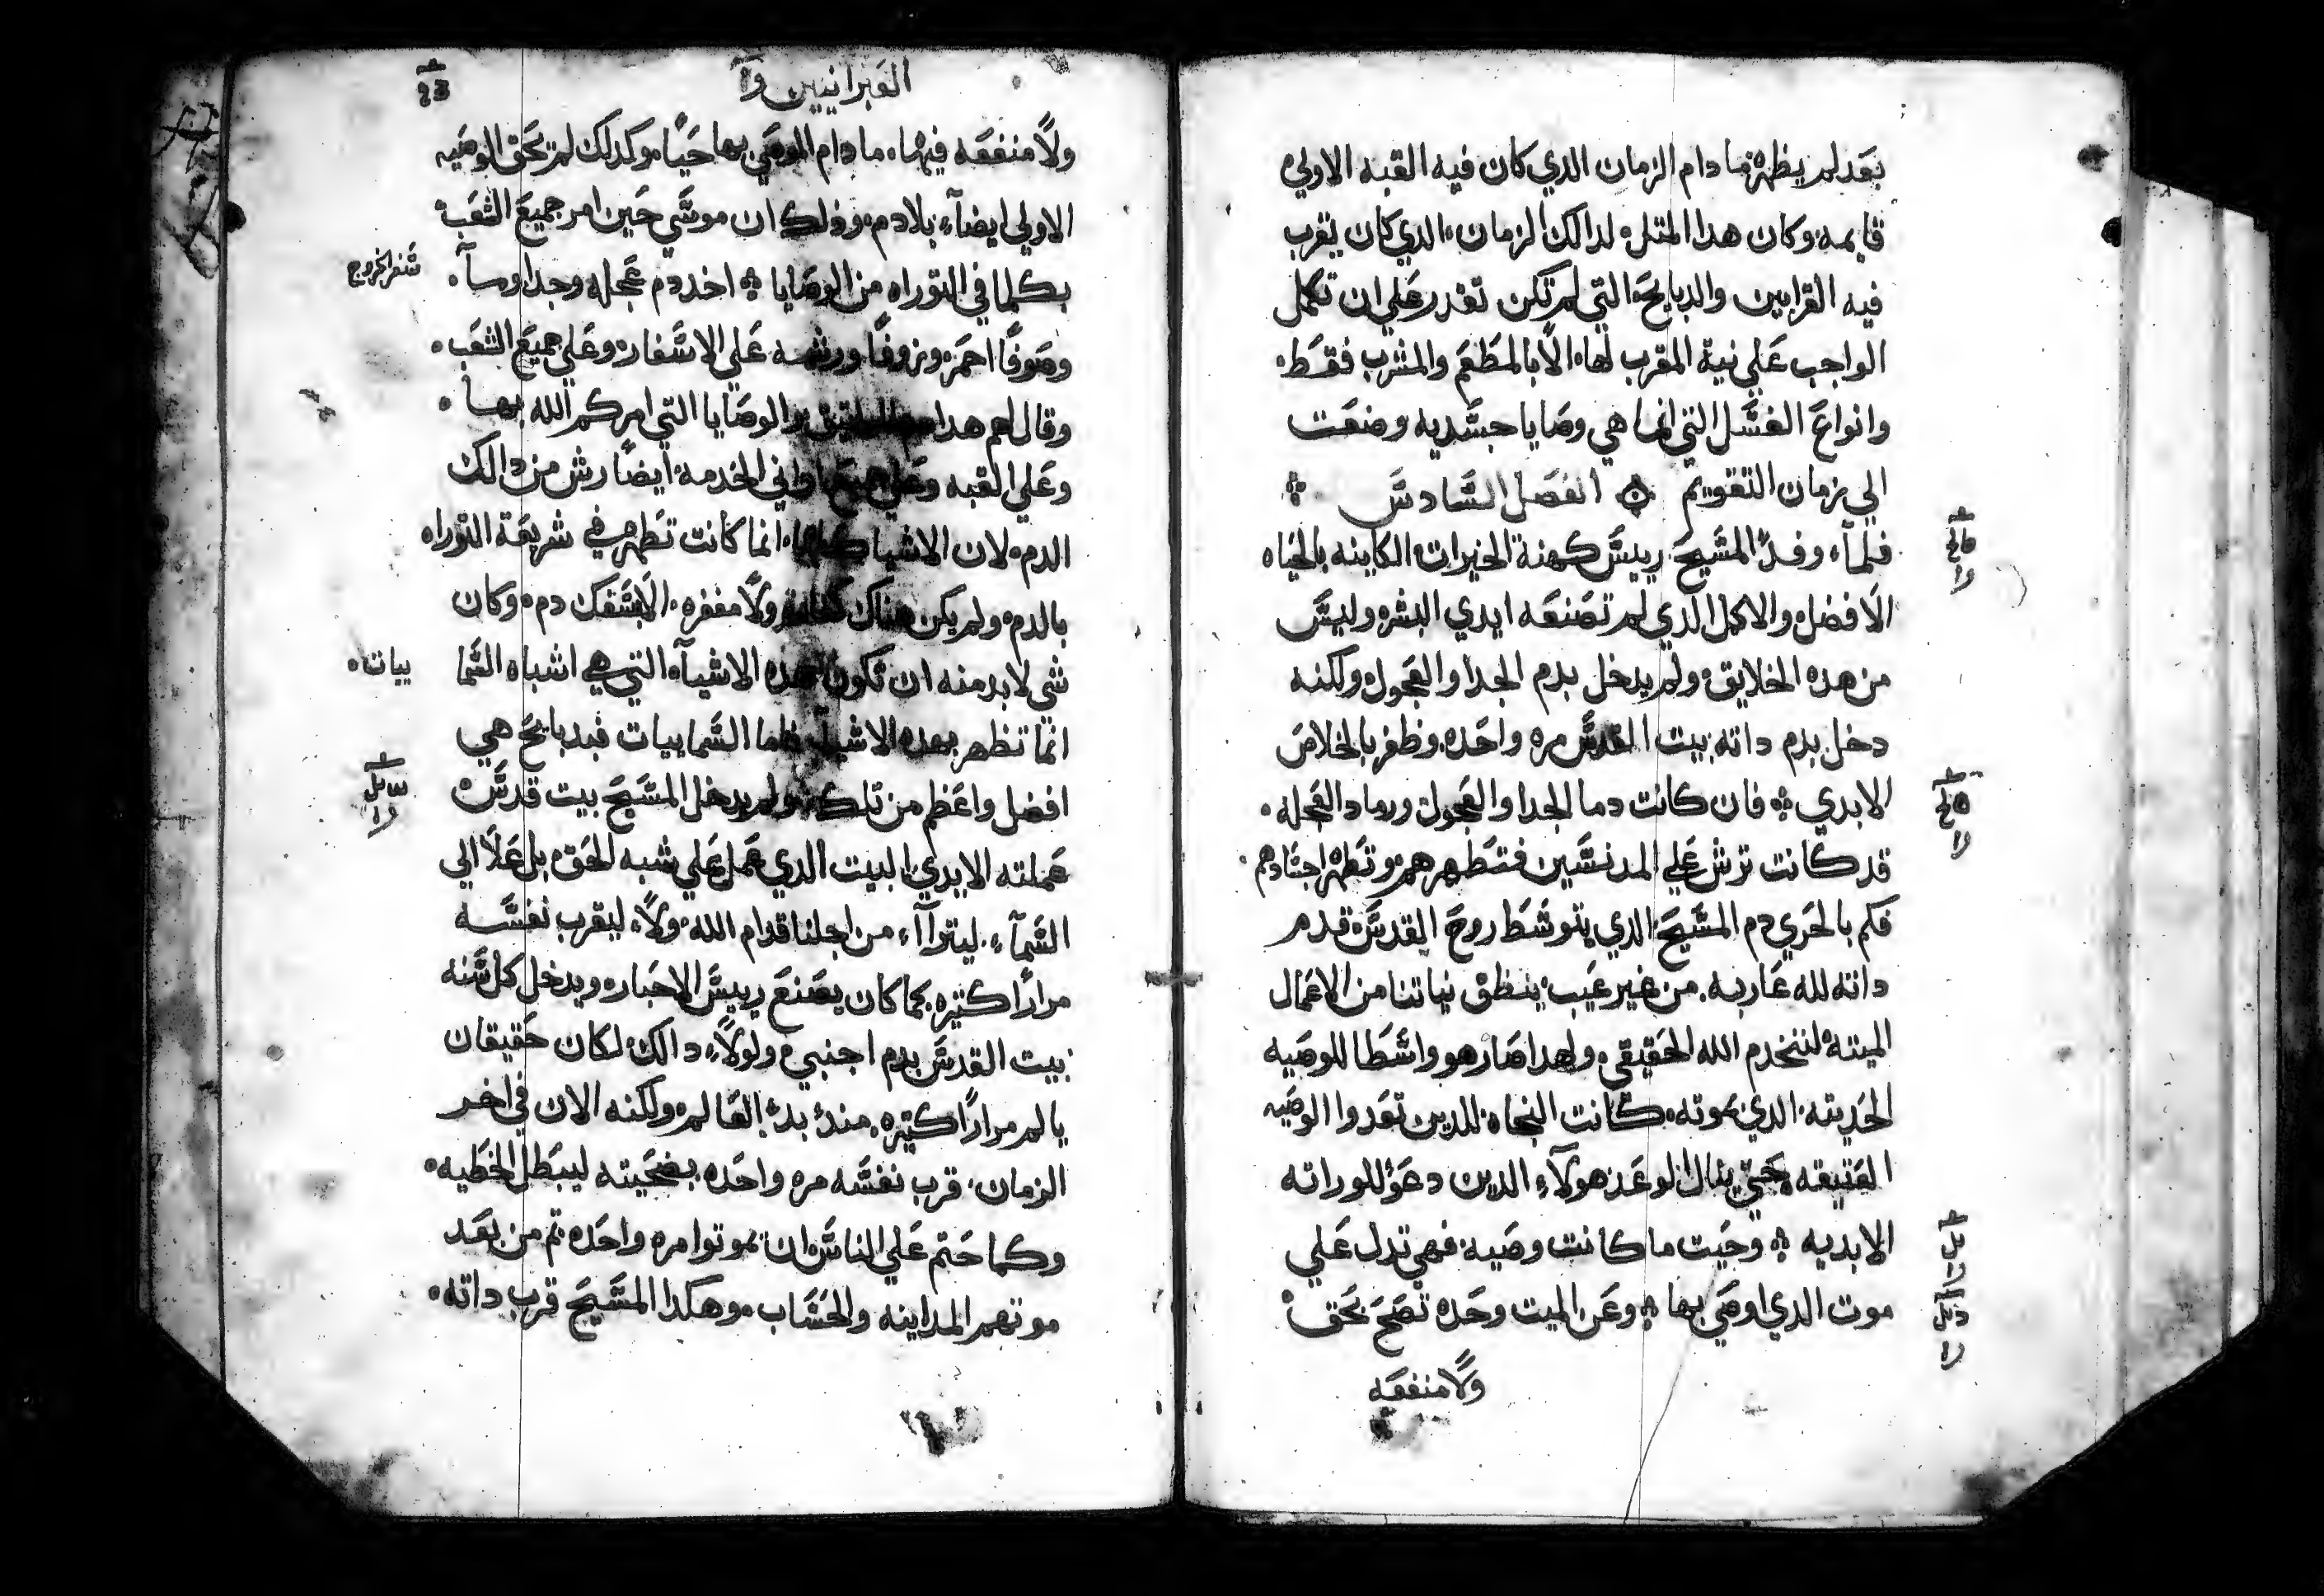 بعد لم يظهر ما دام الزمان الدي كان فيه القبه الاولي
قايمه وكان هدا المتل لدالك الزمان الدي كان يقرب
فيه القرابين والدبايح التي لم تكن تقدر علي ان تكمل
الواجب علي نية المقرب لها الا بالمطعم والمشرب فقط
وانواع الغسل التي انما هي وصايا جسديه وضعت
الي زمان التقويم الفصل السادس
فلمآ وفد المسيح رييس كهنة الخيرات الكاينه بالخباه
الافضل والاكمل الدي لم تصنعه ايدي البشر وليس
من هده الخلايق ولم يدخل بدم الجدا والعجول ولكنه
دخل بدم داته بيت القدس مره واحده وظفر بالخلاص
الابدي فان كانت دما الجدا والعجول ورماد العجله
قد كانت ترش علي المدنسين فتطهرهم وتطهر اجسادهم
فكم بالحري دم المسيح الدي بتوسط روح القدس قدم
داته لله عاريه من غير عيب ينظف نياتنا من الاعمال
الميته لنخدم الله الحقيقي ولهدا صار هو واسطا للوصيه
الحديته الدي بموته كانت النجاه للدين تعدوا الوصيه
العتيقه حتي ينال الوعد هولآء الدين دعوا للوراته
الابديه وحيت ما كانت وصيه فهي تدل علي
موت الدي اوصي بها وعن الميت وحده تصح بحق
ولا منفعه
العبرانيين وآ
ولا منفعه فيها ما دام الموصي بها حيا وكدلك لم تحق الوصيه
الاولي ايضآ بلا دم وذلك ان موسي حين امر جميع الشعب
بكلما في التوراه من الوصايا اخد دم عجله وجدا ومآ
سفر الخروج
وصوفا احمر وزوفا ورشه علي الاسفار وعلي جميع الشعب
وقال لهم هدا الوصايا التي امركم الله بها
وعلي القبه وعلي جميع اواني الخدمه ايضا رش من دالك
الدم لان الاشيا كلها انما كانت تطهر في شريعة التوراه
بالدم ولم يكن هناك ولا مغفره الا بسفك دم وكان
شي لابد منه ان تكون هده الاشيآ التي هي اشباه السما
ييات
انما تطهر بهده الاشيا فاما السماييات فبدبايح هي
افضل واعظم من تلك ولم يدخل المسيح بيت قدس
عملته الايدي البيت الدي عمل علي شبه الحق بل علا الي
السمآ ليترآآ من اجلنا قدام الله ولا ليقرب نفسه
مرارا كتيره كما كان يصنع رييس الاحبار ويدخل كل سنه
بيت القدس بدم اجنبي ولولا دالك لكان حقيقان
يالم مرارا كتيره مند بدء العالم ولكنه الان في اخر
الزمان قرب نفسه مره واحده بضحيته ليبطل الخطيه
وكما حتم علي الناس ان يموتوا مره واحده تم من بعد
موتهم المداينه والحساب وهكدا المسيح قرب داته